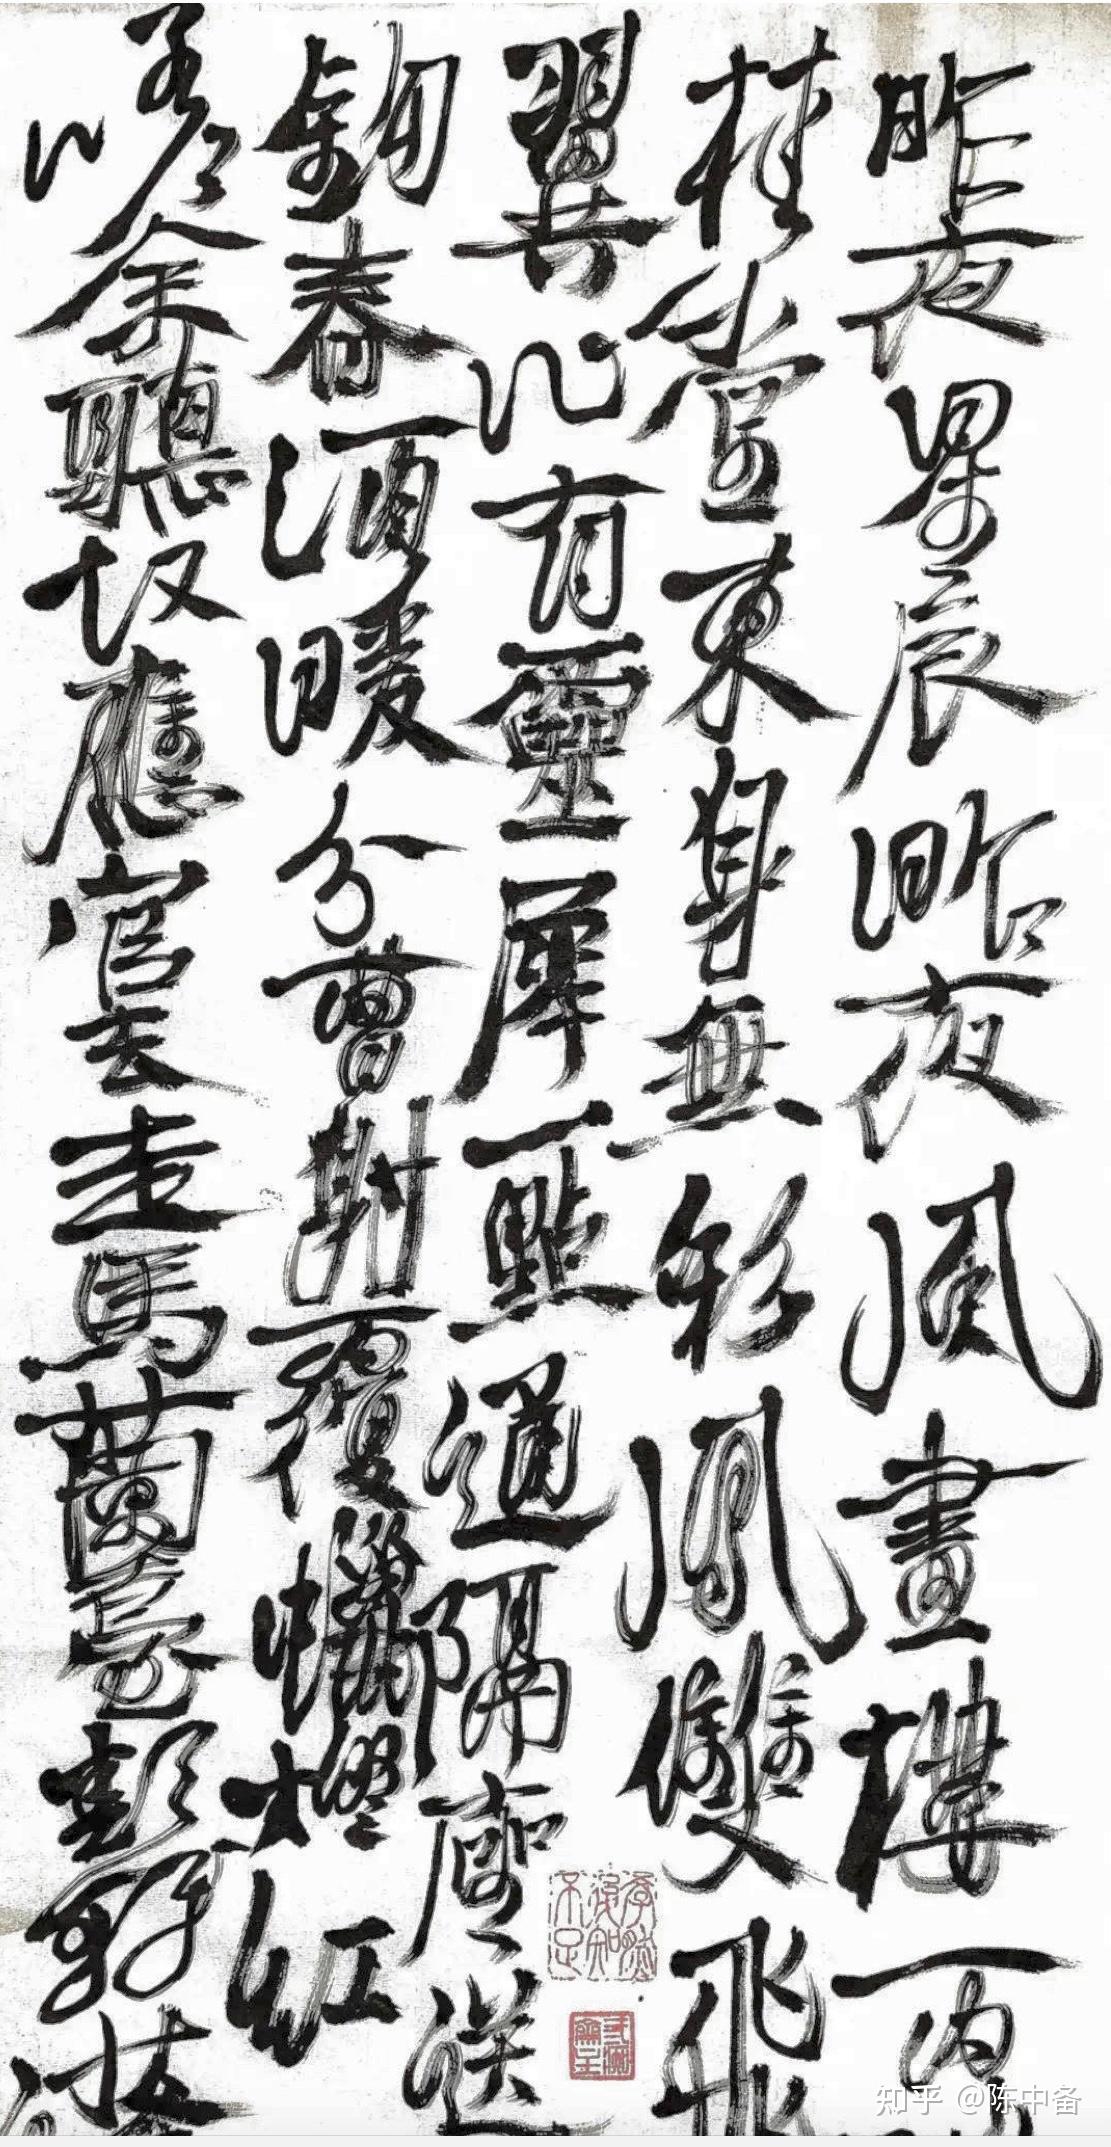 昨夜星辰昨夜風畫樓西
桂堂東身無彩鳳雙飛
翼心有靈犀一點通隔座送
鉤春酒暖分曹射覆蠟燈紅
嗟余聽鼓應官去走馬蘭臺類轉蓬
學然後知不足
知乎 @陈中备